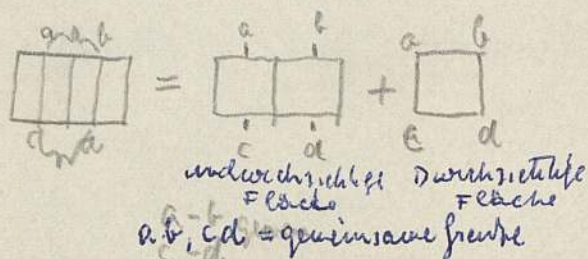 a b
c d
=
a b
c d
+
a b
c d
undurchsichtige Fläche
Durchsichtige Fläche
a b, c d = gemeinsame Grenze